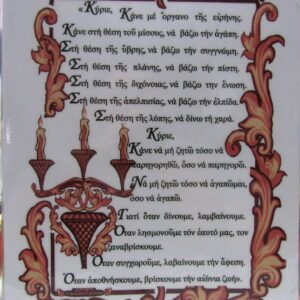 «Κύριε, Κάνε μέ ὄργανο τῆς εἰρήνης.
Κάνε στή θέση τοῦ μίσους, νά βάζω τήν ἀγάπη.
Στή θέση τῆς ὕβρης, νά βάζω τήν συγγνώμη.
Στή θέση τῆς πλάνης, νά βάζω τήν πίστη.
Στή θέση τῆς διχόνοιας, νά βάζω τήν ἕνωση.
Στή θέση τῆς ἀπελπισίας, νά βάζω τήν ἐλπίδα.
Στή θέση τῆς λύπης, νά δίνω τή χαρά.
Κύριε,
Κάνε νά μή ζητῶ τόσο νά
παρηγορηθῶ, ὅσο νά παρηγορῶ.
Νά μή ζητῶ τόσο νά ἀγαπῶμαι,
ὅσο νά ἀγαπῶ.
Γιατί ὅταν δίνουμε, λαμβαίνουμε.
Ὅταν λησμονοῦμε τόν ἑαυτό μας, τον
ξαναβρίσκουμε.
Ὅταν συγχωροῦμε, λαβαίνουμε τήν ἄφεση.
Ὅταν ἀποθνήσκουμε, βρίσκουμε τήν αἰώνια ζωή».